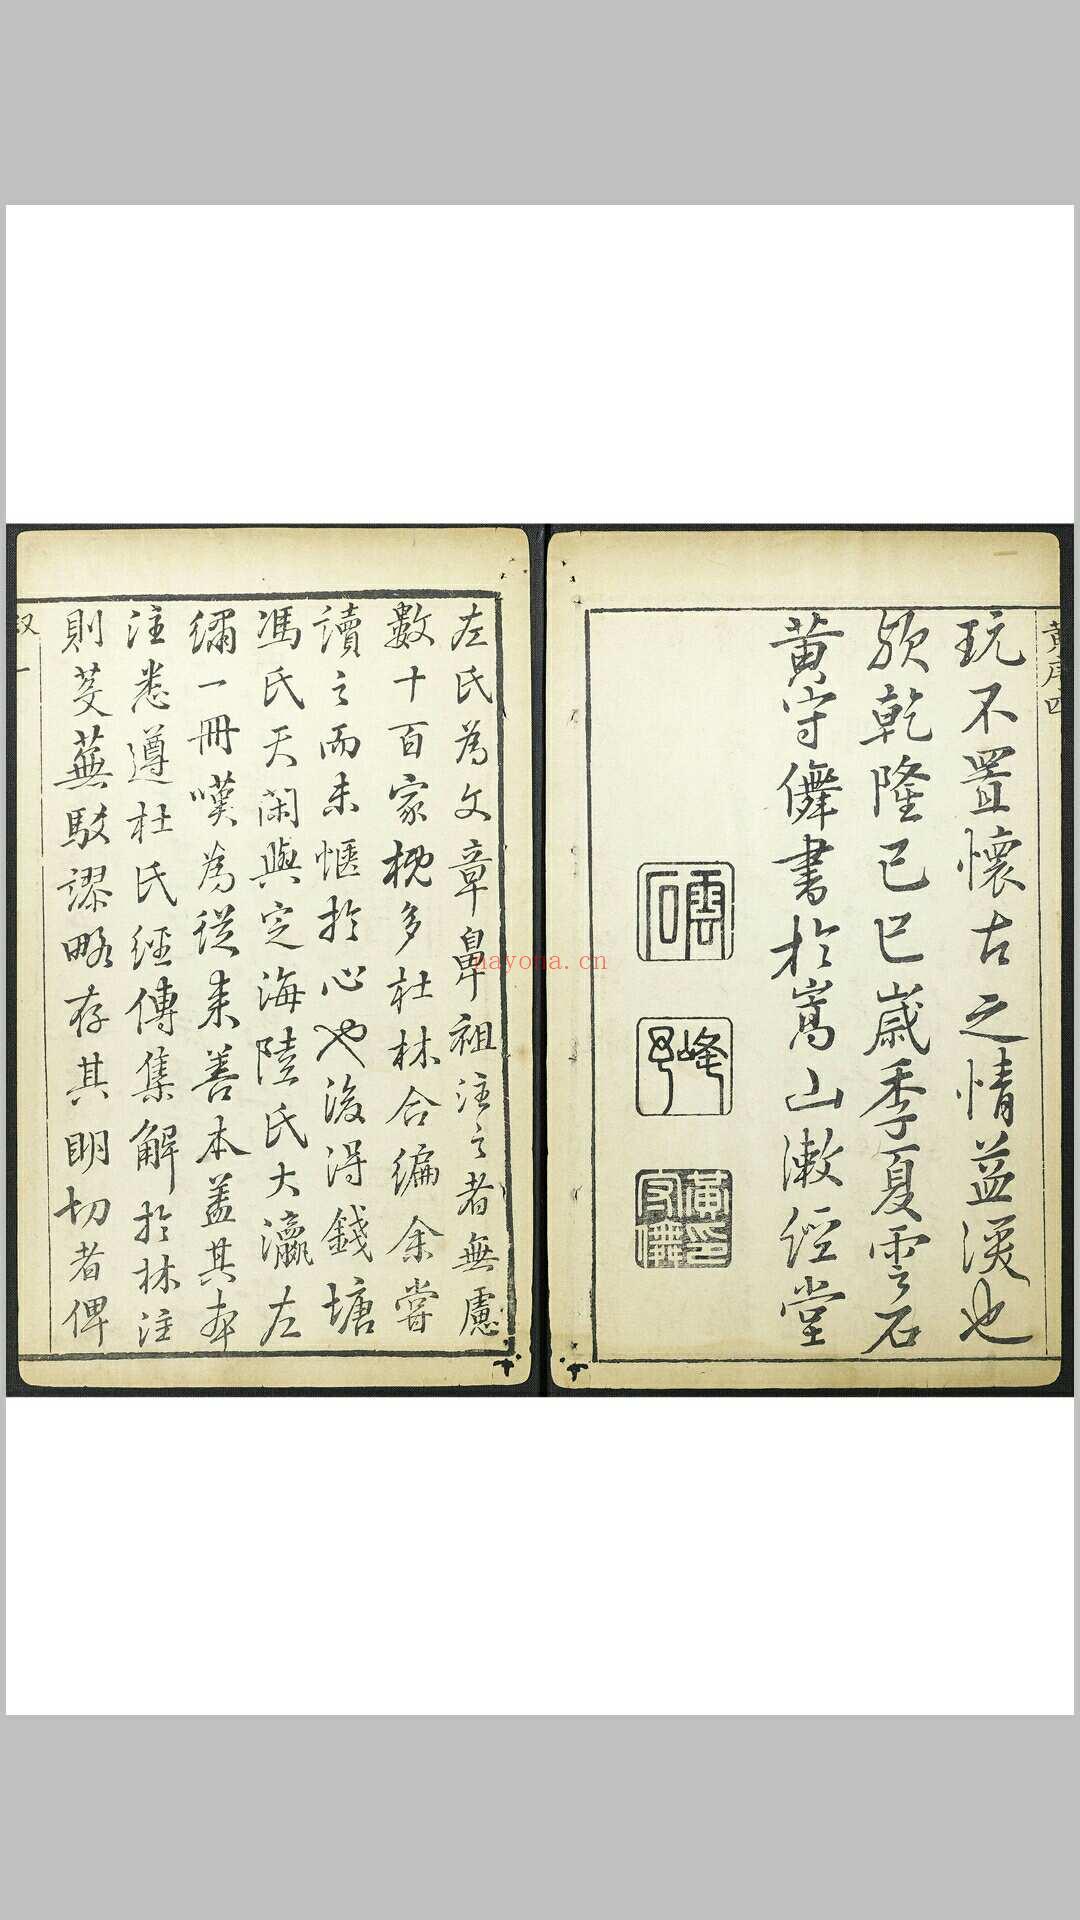 黃序四
玩不置懷古之情益深也
歟乾隆己巳歲季夏雲石
黃守儛書於嵩山漱經堂
雲石
黃守儛印
左氏為文章鼻祖注之者無慮
數十百家概多杜林合編余嘗
讀之而未愜於心也後得錢塘
馮氏天閑與定海陸氏大瀛左
繡一冊嘆為從來善本蓋其本
注悉遵杜氏經傳集解於林注
則芟蕪駁謬略存其明切者俾
叙一
nayona.cn